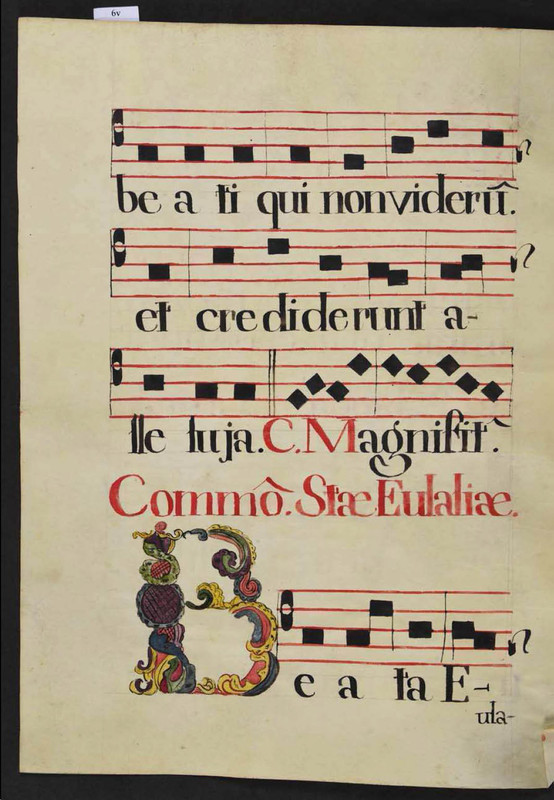 6v
be a ti qui non viderũ.
et crediderunt a-
lle luja. C. Magnifit.^
Commô. Stæ Eulaliæ.
Be a ta E-
ula-